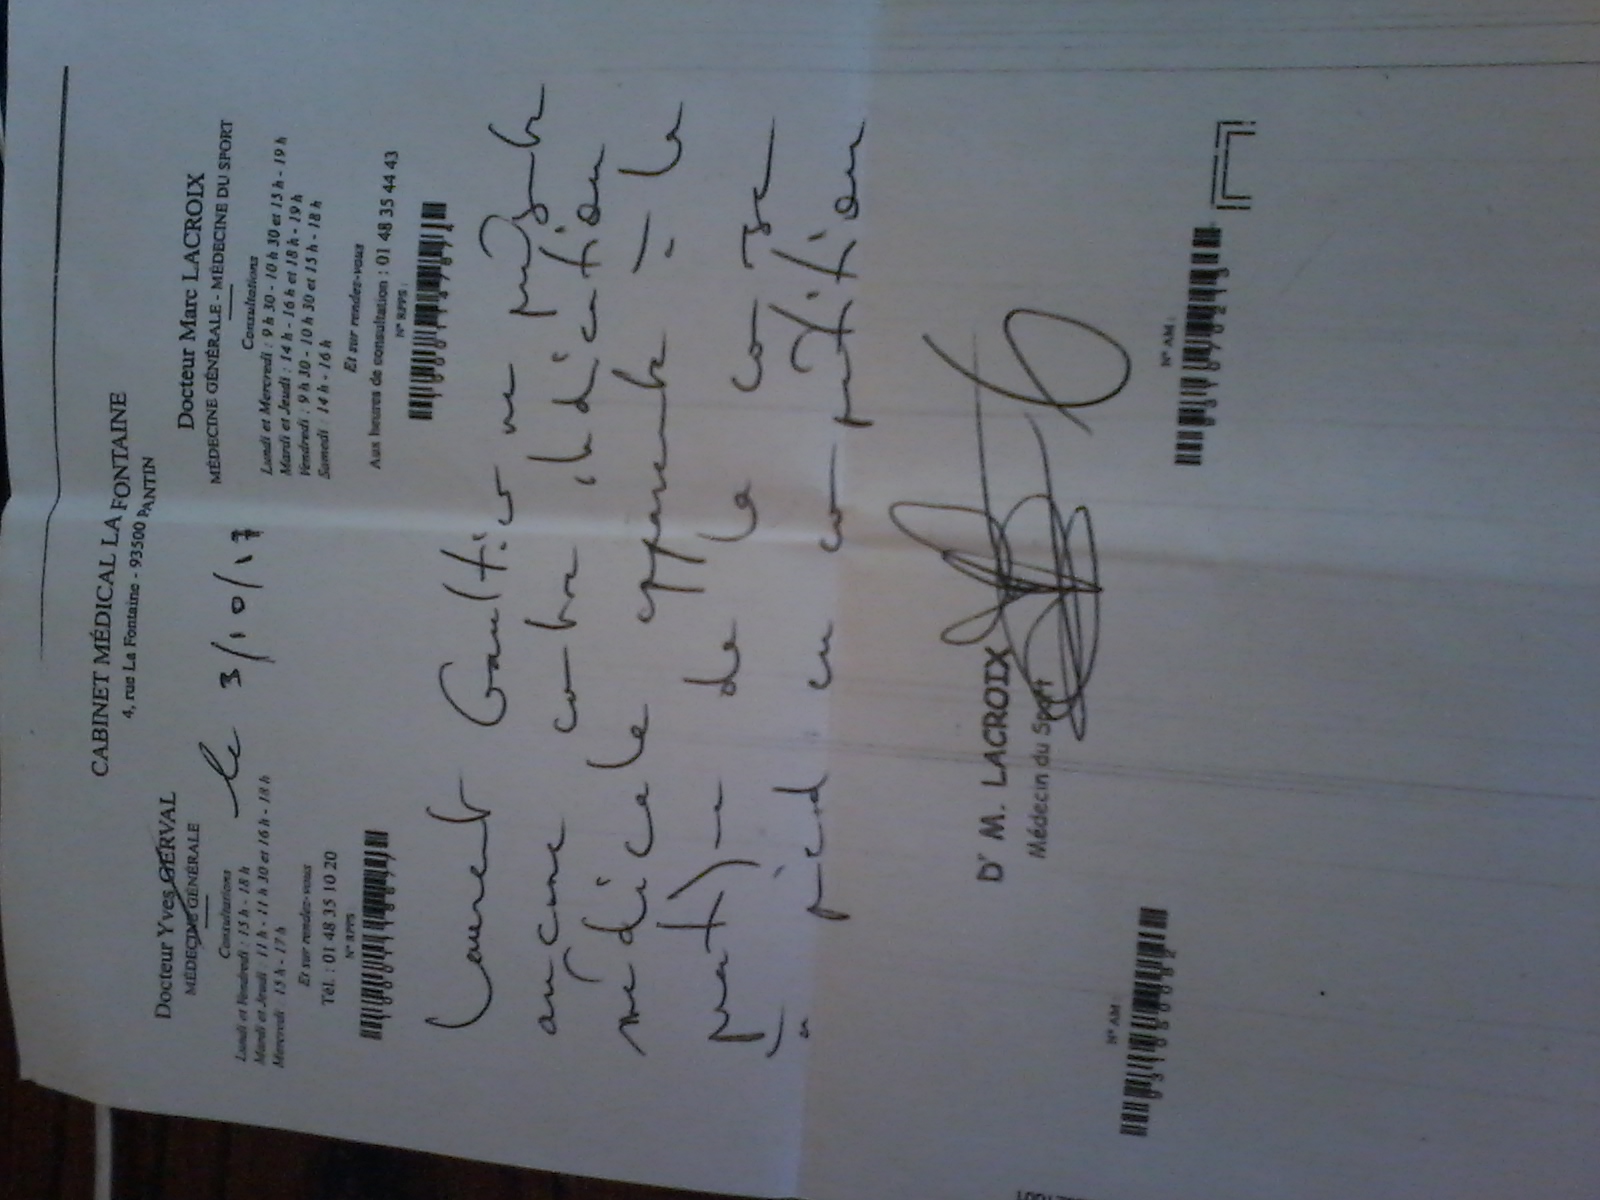 CABINET MÉDICAL LA FONTAINE
4, rue La Fontaine - 93500 PANTIN
Docteur Yves GERVAL
MÉDECINE GÉNÉRALE
Consultations
Lundi et Vendredi : 15 h - 18 h
Mardi et Jeudi : 11 h - 11 h 30 et 16 h - 18 h
Mercredi : 15 h - 17 h
Et sur rendez-vous
Tél. : 01 48 35 10 20
N° RPPS
le 3/10/17
Docteur Marc LACROIX
MÉDECINE GÉNÉRALE - MÉDECINE DU SPORT
Consultations
Lundi et Mercredi : 9 h 30 - 10 h 30 et 15 h - 19 h
Mardi et Jeudi : 14 h - 16 h et 18 h - 19 h
Vendredi : 9 h 30 - 10 h 30 et 15 h - 18 h
Samedi : 14 h - 16 h
Et sur rendez-vous
Aux heures de consultation : 01 48 35 44 43
N° RPPS :
Laurent Gaultier ne présente
aucune contre indication
médicale apparente à la
pratique de la course
à pied en compétition
Dr M. LACROIX
Médecin du Sport
N° AM :
N° AM :